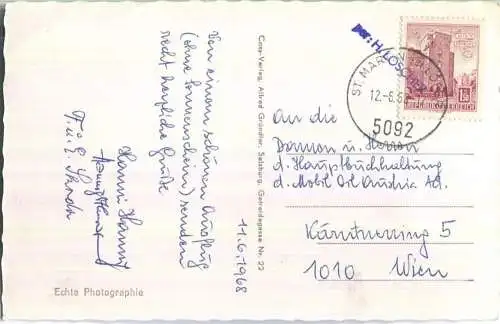 Von einem schönen Ausflug
(ohne Sonnenschein) senden
recht herzliche Grüße
Hanni
F. u. E.
11.6.1968
Echte Photographie
Cosy-Verlag, Alfred Gründler, Salzburg, Getreidegasse Nr. 22
ST. MARTIN
12.-6.6
5092
REPUBLIK ÖSTERREICH
1.50
An die
Damen u. Herren
d. Hauptbuchhaltung
d. Mobil Oil Austria AG.
Kärntnerring 5
1010 Wien